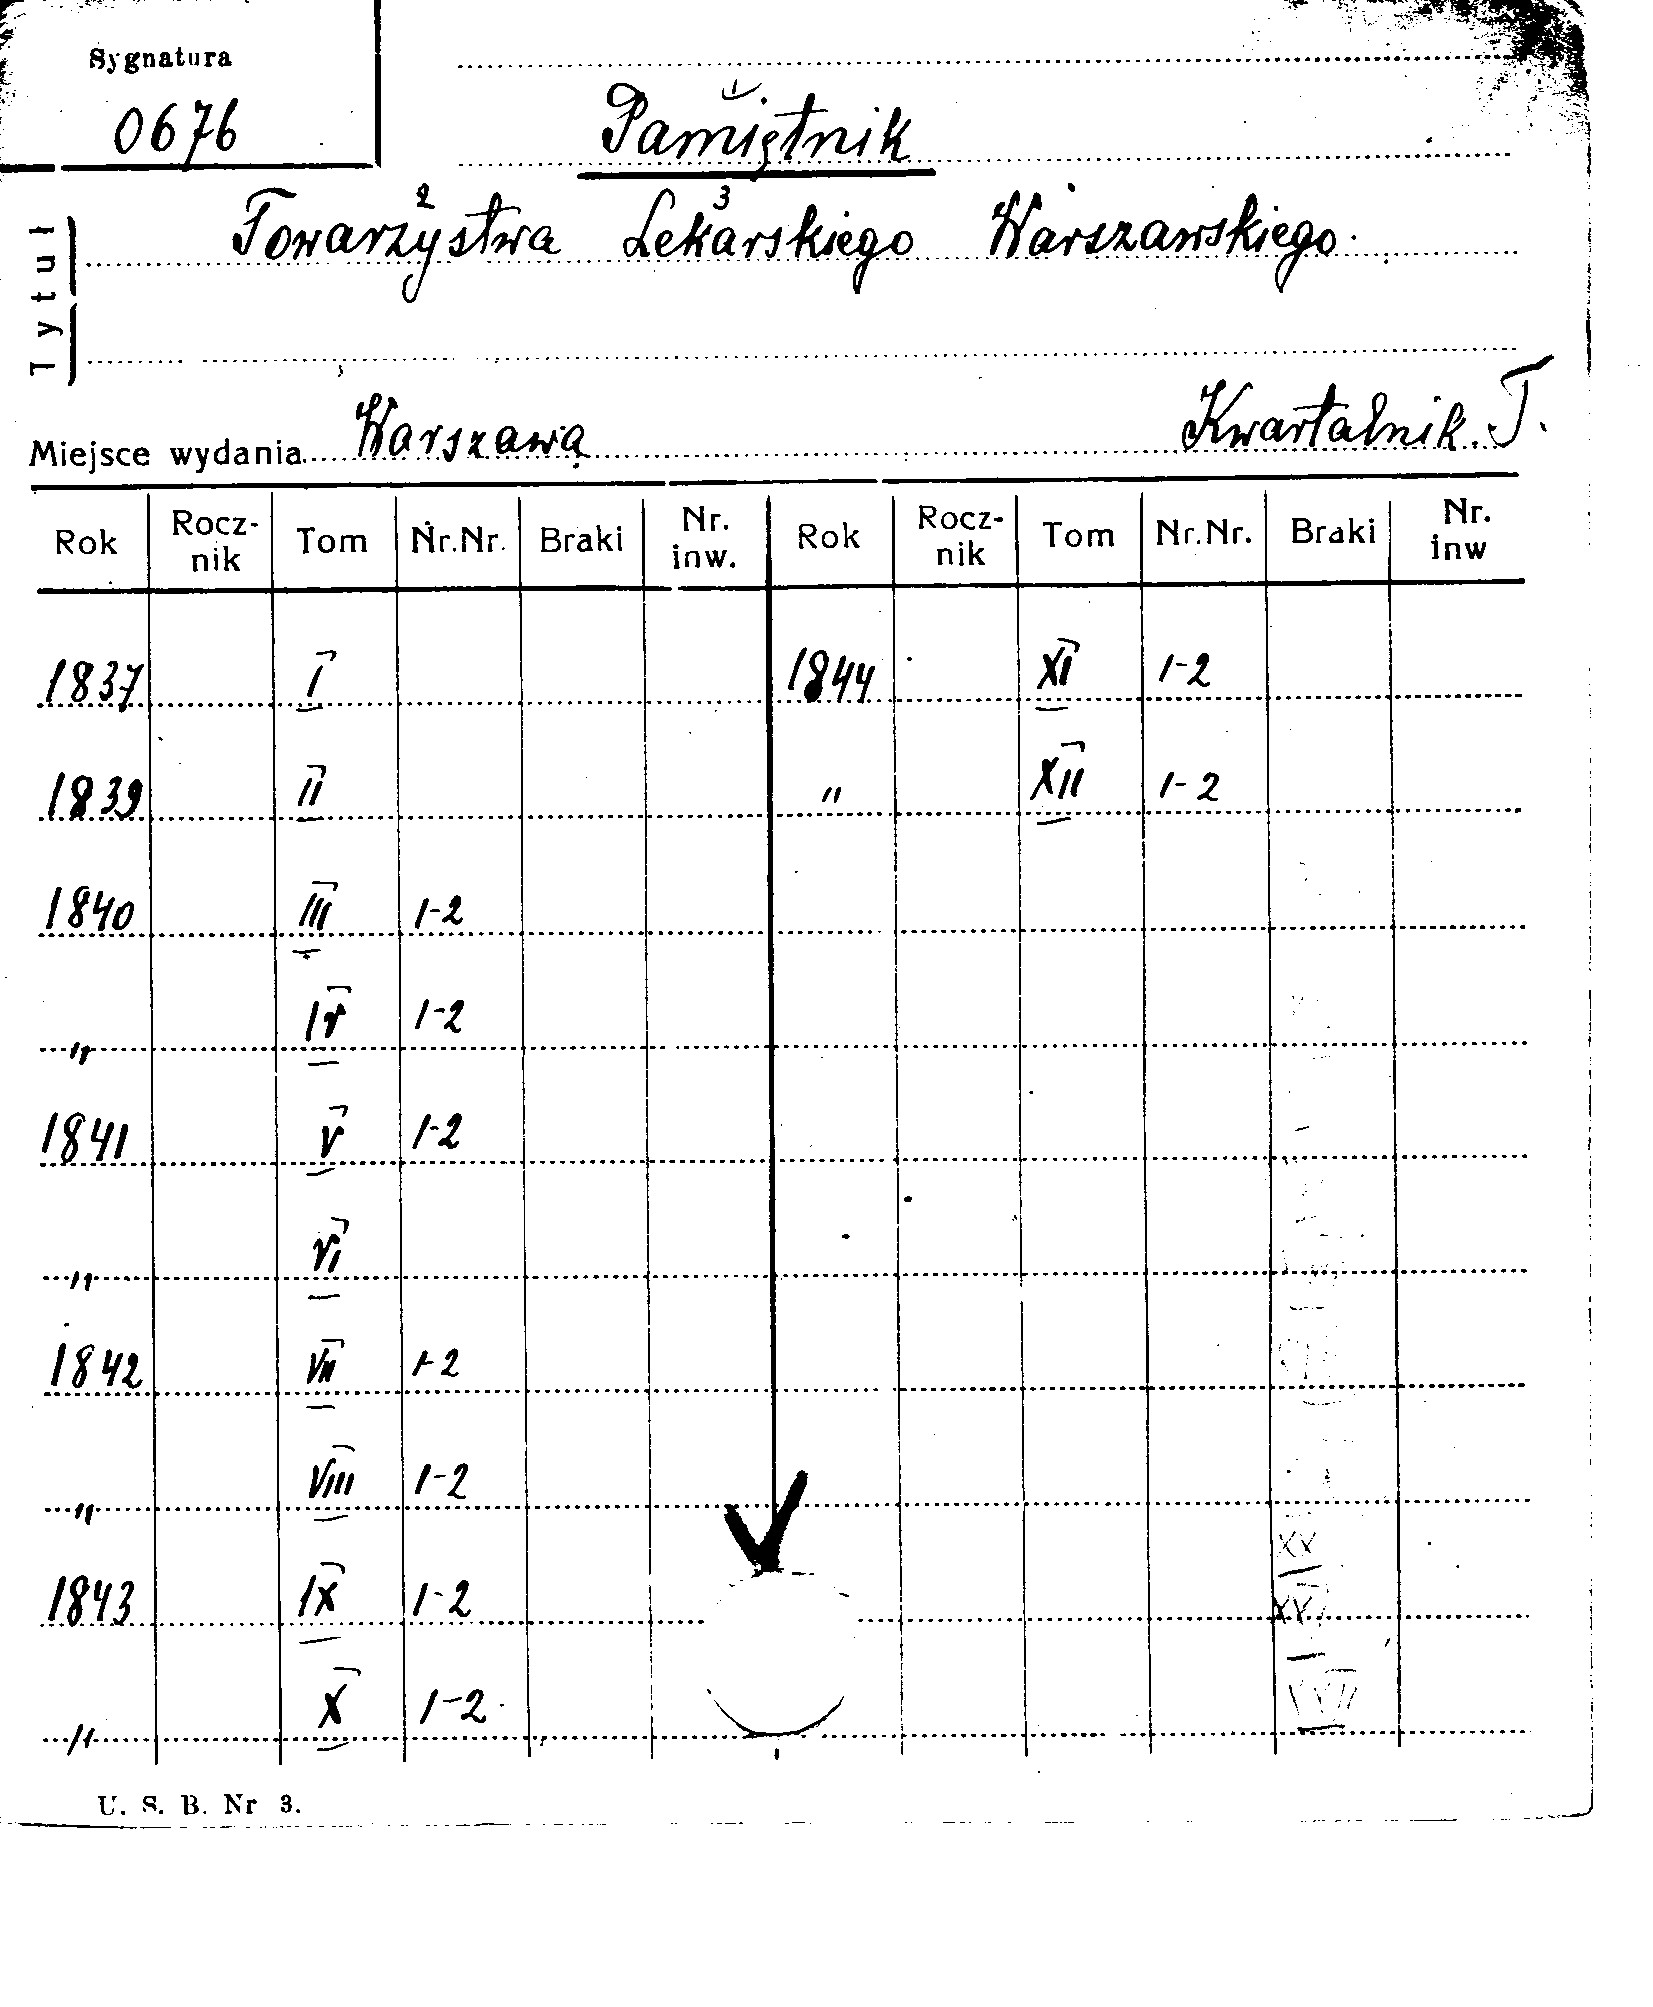 Sygnatura
0676
Pamiętnik
2 3
Towarzystwa Lekarskiego Warszawskiego.
Tytuł
Miejsce wydania Warszawa Kwartalnik. T.
Rok Rocz-nik Tom Nr.Nr. Braki Nr. inw. Rok Rocz-nik Tom Nr.Nr. Braki Nr. inw
1837 I 1844 XI 1-2
1839 II " XII 1-2
1840 III 1-2
" IV 1-2
1841 V 1-2
" VI
1842 VII 1-2
" VIII 1-2
XV
1843 IX 1-2
" X 1-2
U. S. B. Nr 3.